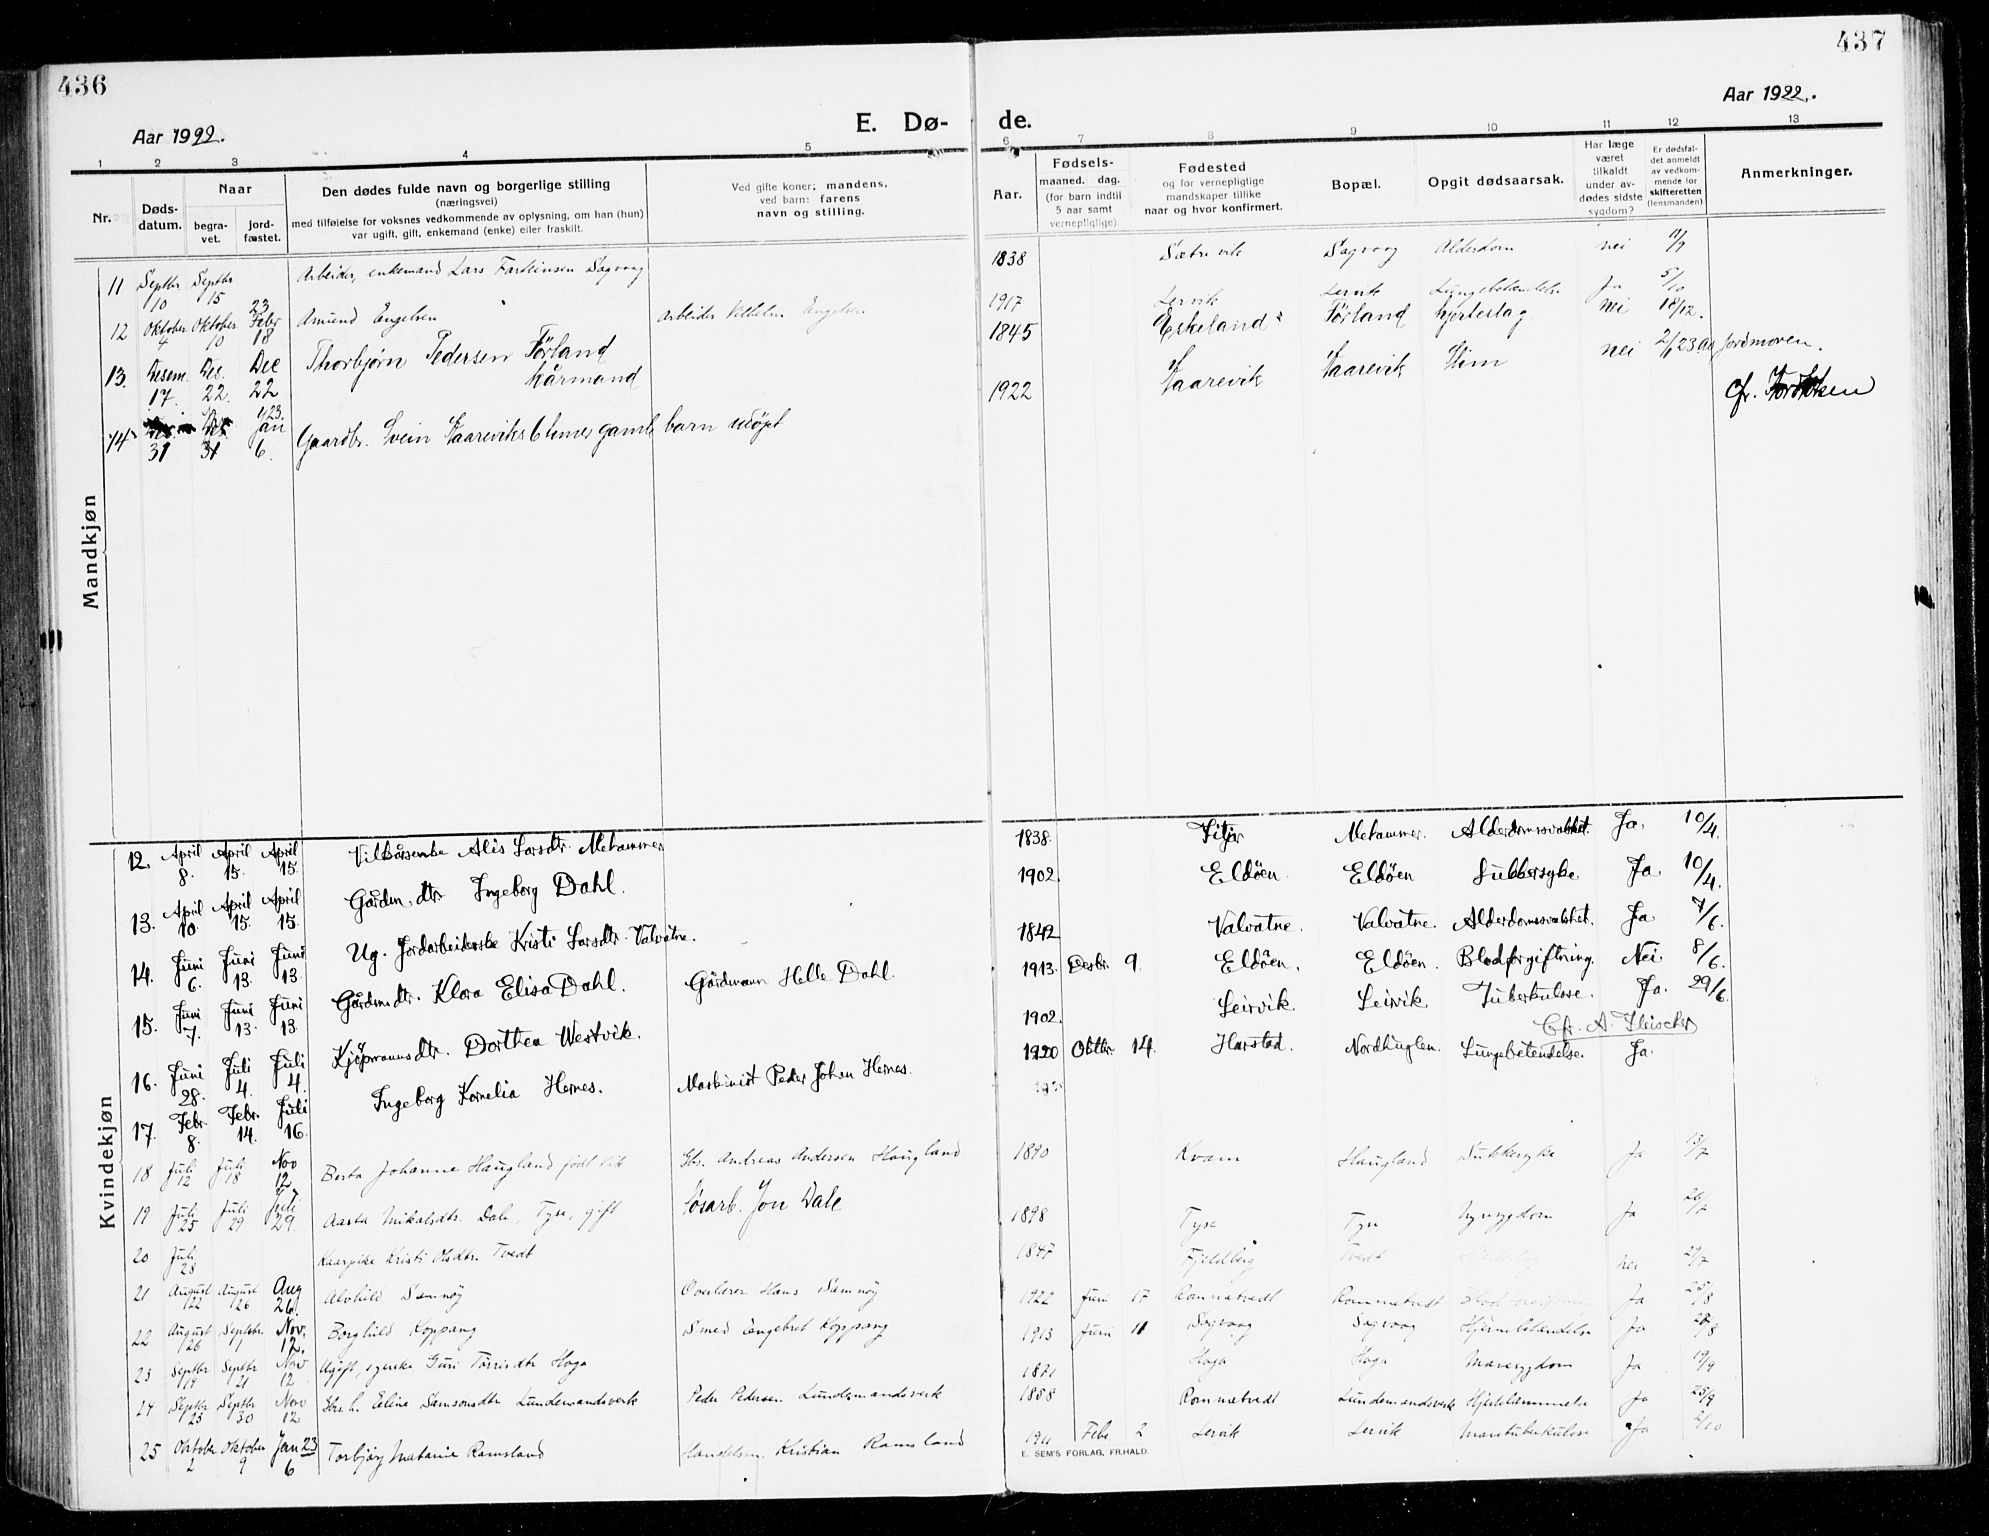 436
437
Aar 1922.
E. Dø-
de.
Aar 1922.
1 2 3 4 5 6 7 8 9 10 11 12 13
Nr.
Døds-
datum.
Naar
begra-
vet.
jord-
fæstet.
Den dødes fulde navn og borgerlige stilling
(næringsvei)
med tilføielse for voksnes vedkommende av oplysning, om han (hun)
var ugift, gift, enkemand (enke) eller fraskilt.
Ved gifte koner: mandens,
ved barn: farens
navn og stilling.
Aar.
Fødsels-
maaned. dag.
(for barn indtil
5 aar samt
vernepligtige)
Fødested
og for vernepligtige
mandskaper tillike
naar og hvor konfirmert.
Bopæl.
Opgit dødsaarsak.
Har læge
været
tilkaldt
under av-
dødes sidste
sygdom?
Er dødsfal-
det anmeldt
av vedkom-
mende for
skifteretten
(lensmanden).
Anmerkninger.
Mandkjøn
11 Septbr 10 Septbr 15 Arbeider, enkemand Lars Sagvaag 1838 Sætrevik Sagvaag Alderdom nei 11/9
12 Oktober 4 Oktober 10 23 Febr 18 Amund Engelsen Arbeider Vilhelm Engelsen 1917 Lervik Lervik Lungebetændelse Ja 5/10
13. Desem. 17. Des. 22. Dec 22 Thorbjørn Pedersen Førland kårmand 1845 Eskeland Førland hjerteslag nei 18/12.
14 31 31 Jan 6. Gaardbr. Svein gamle barn udøpt 1922 nei 2/1 23 Jordmoren.
Cfr.
Kvindekjøn
12. April 8. April 15. April 15. Vilkårsenke Alis Larsdtr. Mehammer 1838. Fitjar Mehammer. Alderdomssvakhet. Ja. 10/4.
13. April 10. April 15. April 15. Gårdm. dtr. Ingeborg Dahl. 1902. Eldöen. Eldöen Sukkersyke. Ja. 10/4.
14. Juni 6. Juni 13. Juni 13. Ug. Jordarbeiderske Kristi Larsdtr. Valvatne. 1842 Valvatne. Valvatne. Alderdomssvakhet. Ja. 7/6.
15. Juni 7. Juni 13. Juni 13. Gårdmdtr. Klara Elisa Dahl. Gårdmann Helle Dahl. 1913. Desbr. 9. Eldöen. Eldöen. Blodforgiftning. Nei. 8/6.
16. Juni 28. Juli 4. Juli 4. Kjöpmannsdtr. Dorthea Westvik. 1902. Leirvik. Leirvik. Tuberkulose. Ja. 29/6.
Cfr. A. Fleischer
17. Febr. 8. Febr. 14. Juli 16. Ingeborg Kornelia Hernes. Maskinist Peder Johan Hernes. 1920 Oktbr. 14. Harstad. Nordhuglen. Lungebetendelse. Ja.
18 Juli 12 Juli 18 Nov 12 Berta Johanne Haugland født Vik Gbr. Andreas Andersen Haugland 1890 Kvam Haugland Sukkersyke Ja 13/7
19 Juli 25 Juli 29 Juli 29. Aasta Mikalsdtr. Dale, Tyse, gift Løsarb. Jon Dale 1898 Tyse Tyse Ja 26/7
20 Juli 28 Kaarpike Kristi Olsdtr. Tvedt 1847 Fjeldberg Tvedt Hjerteslag nei 29/7
21 August 22 August 26 Aug 26. Alvhild Samnøy Overlærer Hans Samnøy 1922 Juni 17 Rommetvedt Rommetvedt Blodforgiftning Ja 25/8
22 August 26 Septbr. 1 Nov. 12. Borghild Koppang Smed Engebret Koppang 1913 Juni 11 Sagvaag Sagvaag Hjernebetændelse Ja 28/8
23 Septbr 17 Septbr 21 Nov 12 Ugift, syerske Guri Tørrisdtr Haga 1871 Haga Haga Mavesygdom Ja 19/9
24 Septbr 23 Septbr 30 Nov 12 Gbr.h. Eline Samsonsdtr Lundemandsverk Peder Pedersen Lundemandsverk 1858 Rommetvedt Lundemandsverk Hjertelammelse Ja 25/9
25 Oktober 2 Oktober 9 Jan 23 6 Torbjørg Matanie Ramsland Handelsm. Kristian Ramsland 1911 Febr. 2 Lervik Lervik Mavetuberkulose Ja 2/10
E. SEM'S FORLAG, FR.HALD.